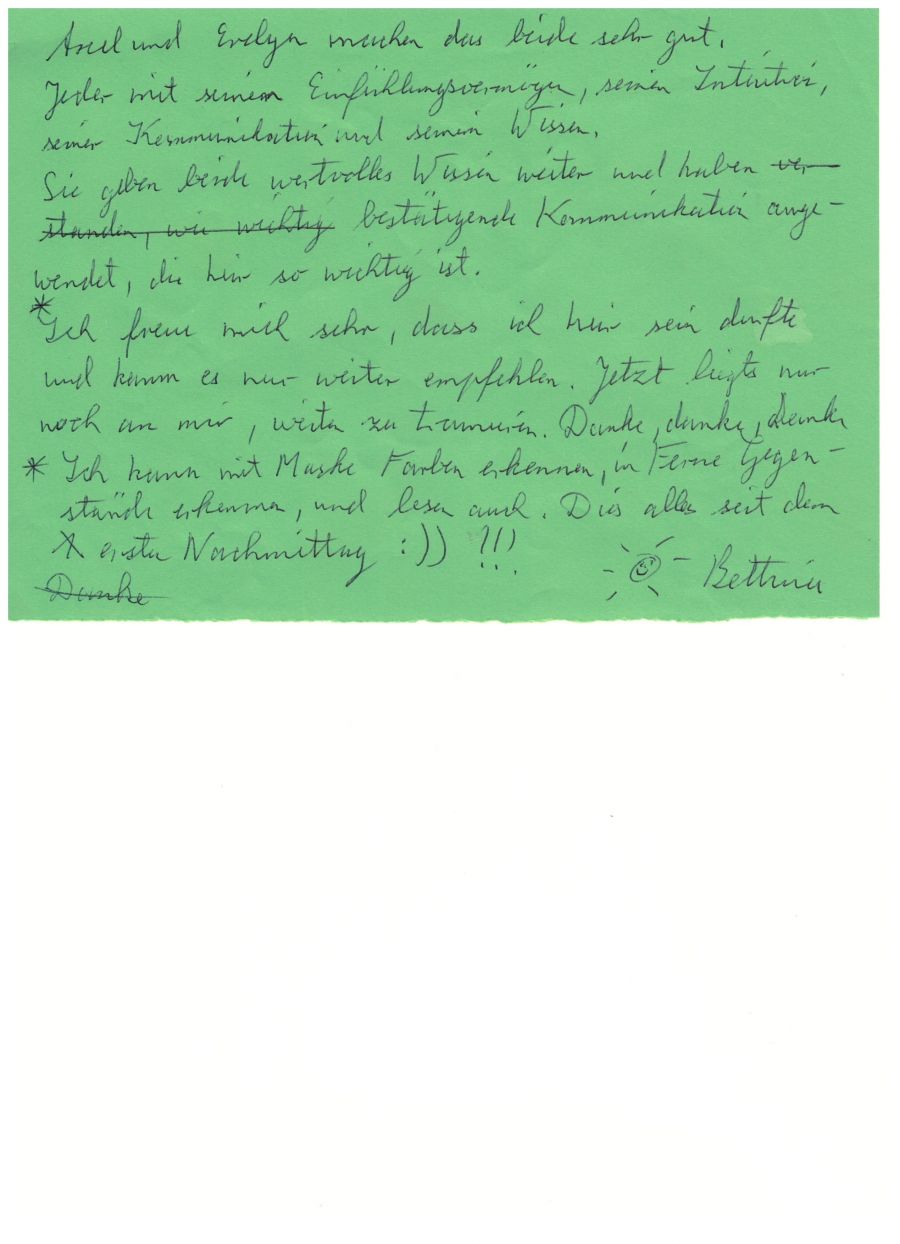 Axel und Evelyn machen das beide sehr gut.
Jeder mit seinem Einfühlungsvermögen, seiner Intuition,
seiner Kommunikation und seinem Wissen.
Sie geben beide wertvolles Wissen weiter und haben ver-
standen, wie wichtig bestätigende Kommunikation ange-
wendet, die hier so wichtig ist.
* Ich freue mich sehr, dass ich hier sein durfte
und kann es nur weiter empfehlen. Jetzt liegts nur
noch an mir, weiter zu trainieren. Danke, danke, Danke
* Ich kann mit Maske Farben erkennen, in Ferne Gegen-
stände erkennen, und lesen auch. Dies alles seit dem
ersten Nachmittag :)) ?!!)
Bettina
Danke